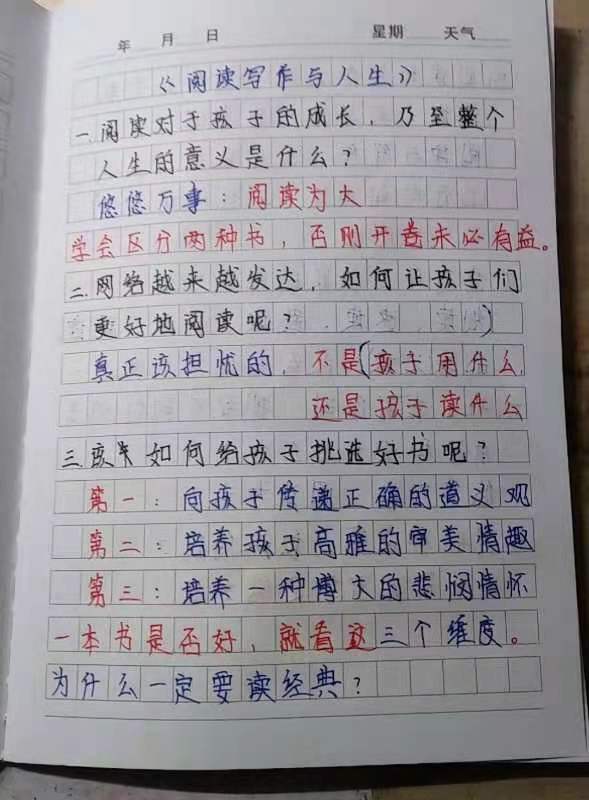 年 月 日 星期 天气
《阅读写作与人生》
一.阅读对于孩子的成长，乃至整个
人生的意义是什么？
悠悠万事：阅读为大
学会区分两种书，否则开卷未必有益。
二.网络越来越发达，如何让孩子们
更好地阅读呢？
真正该担忧的，不是(孩子用什么,
还是孩子读什么
三.家长如何给孩子挑选好书呢？
第一：向孩子传递正确的道义观
第二：培养孩子高雅的审美情趣
第三：培养一种博大的悲悯情怀
一本书是否好，就看这三个维度。
为什么一定要读经典？